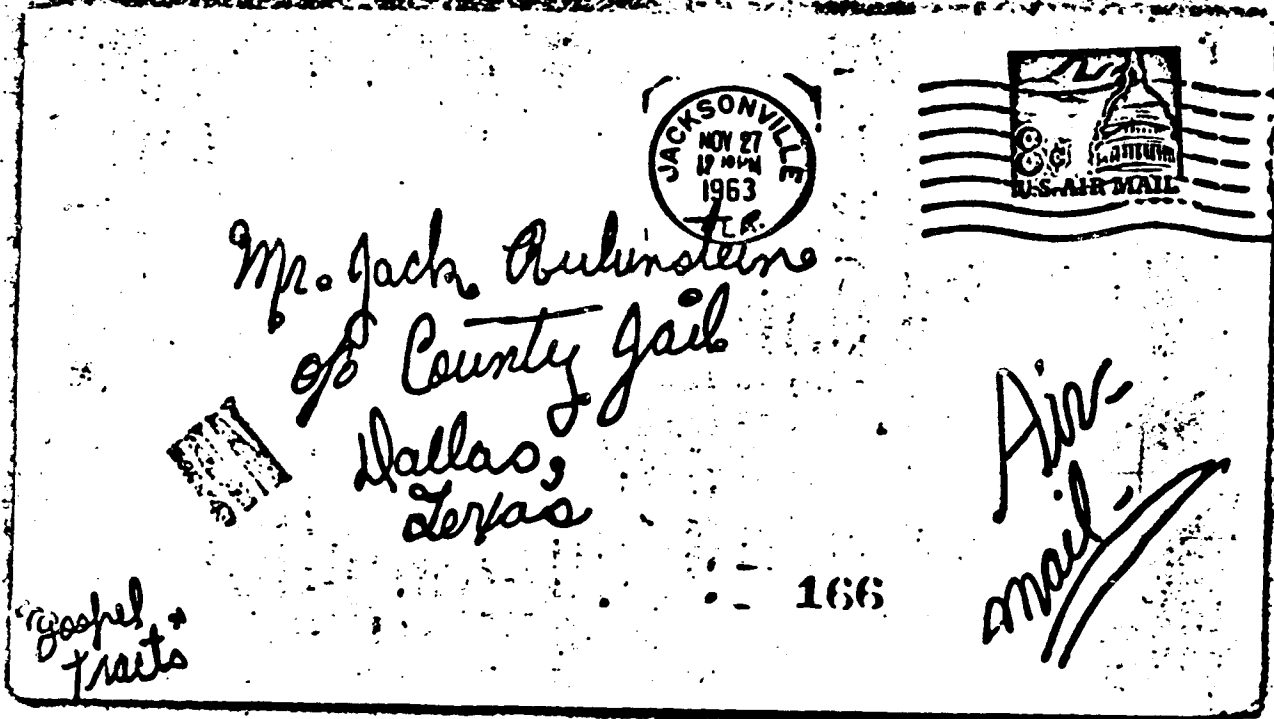 JACKSONVILLE
NOV 27
12 PM
1963
FLA.
8¢
U.S. AIR MAIL
Mr. Jack Rubinstein
c/o County Jail
Dallas,
Texas
Air-
mail-
166
"Gospel
Tracts"